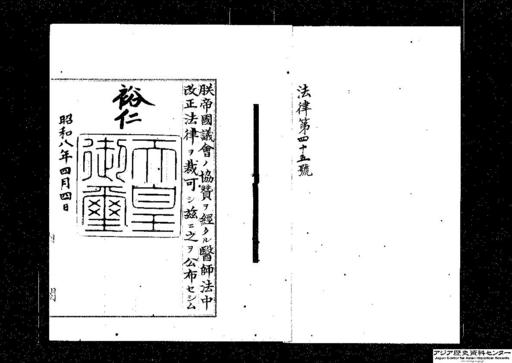 法律第四十五號
朕帝國議會ノ協贊ヲ經タル醫師法中
改正法律ヲ裁可シ茲ニ之ヲ公布セシム
裕仁
天皇御璽
昭和八年四月四日
アジア歴史資料センター
Japan Center for Asian Historical Records